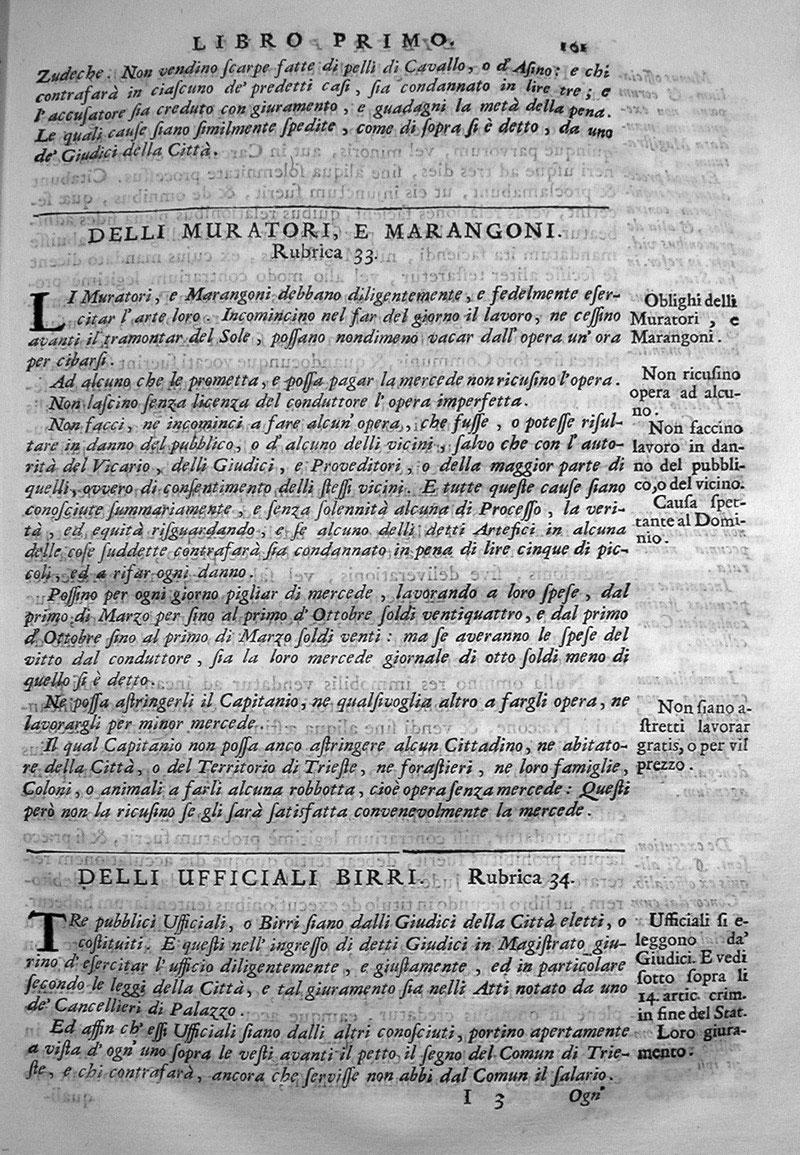 LIBRO PRIMO. 161
Zudeche. Non vendino ſcarpe fatte di pelli di Cavallo, o d'Aſino: e chi
contrafarà in ciaſcuno de' predetti caſi, ſia condannato in lire tre; e
l'accuſatore ſia creduto con giuramento, e guadagni la metà della pena.
Le quali cauſe ſiano ſimilmente ſpedite, come di ſopra ſi è detto, da uno
de' Giudici della Città.
DELLI MURATORI, E MARANGONI.
Rubrica 33.
LI Muratori, e Marangoni debbano diligentemente, e fedelmente eſer-
citar l'arte loro. Incomincino nel far del giorno il lavoro, ne ceſſino
avanti il tramontar del Sole, poſſano nondimeno vacar dall'opera un'ora
per cibarſi.
Ad alcuno che le prometta, e poſſa pagar la mercede non ricuſino l'opera.
Non laſcino ſenza licenza del conduttore l'opera imperfetta.
Non facci, ne incominci a fare alcun'opera, che fuſſe, o poteſſe riſul-
tare in danno del pubblico, o d'alcuno delli vicini, ſalvo che con l'auto-
rità del Vicario, delli Giudici, e Proveditori, o della maggior parte di
quelli, ovvero di conſentimento delli ſteſſi vicini. E tutte queſte cauſe ſiano
conoſciute ſummariamente, e ſenza ſolennità alcuna di Proceſſo, la veri-
tà, ed equità riſguardando, e ſe alcuno delli detti Artefici in alcuna
delle coſe ſuddette contrafarà ſia condannato in pena di lire cinque di pic-
coli, ed a rifar ogni danno.
Poſſino per ogni giorno pigliar di mercede, lavorando a loro ſpeſe, dal
primo di Marzo per fino al primo d'Ottobre ſoldi ventiquattro, e dal primo
d'Ottobre fino al primo di Marzo ſoldi venti: ma ſe averanno le ſpeſe del
vitto dal conduttore, ſia la loro mercede giornale di otto ſoldi meno di
quello ſi è detto.
Ne poſſa aſtringerli il Capitanio, ne qualſivoglia altro a fargli opera, ne
lavorargli per minor mercede.
Il qual Capitanio non poſſa anco aſtringere alcun Cittadino, ne abitato-
re della Città, o del Territorio di Trieſte, ne foraſtieri, ne loro famiglie,
Coloni, o animali a farli alcuna robbotta, cioè opera ſenza mercede: Queſti
però non la ricuſino ſe gli ſarà ſatisfatta convenevolmente la mercede.
Oblighi delli
Muratori, e
Marangoni.
Non ricuſino
opera ad alcu-
no.
Non faccino
lavoro in dan-
no del pubbli-
co, o del vicino.
Cauſa ſpet-
tante al Domi-
nio.
Non ſiano a-
ſtretti lavorar
gratis, o per vil
prezzo.
DELLI UFFICIALI BIRRI. Rubrica 34.
TRe pubblici Ufficiali, o Birri ſiano dalli Giudici della Città eletti, o
coſtituiti. E queſti nell'ingreſſo di detti Giudici in Magiſtrato giu-
rino d'eſercitar l'ufficio diligentemente, e giuſtamente, ed in particolare
ſecondo le leggi della Città, e tal giuramento ſia nelli Atti notato da uno
de' Cancellieri di Palazzo.
Ed affin ch'eſſi Ufficiali ſiano dalli altri conoſciuti, portino apertamente
a viſta d'ogn'uno ſopra le veſti avanti il petto il ſegno del Comun di Trie-
ſte, e chi contrafarà, ancora che ſerviſſe non abbi dal Comun il ſalario.
Ufficiali ſi e-
leggono da'
Giudici. E vedi
ſotto ſopra li
14. artic. crim.
in fine del Stat.
Loro giura-
mento.
I 3 Ogn'